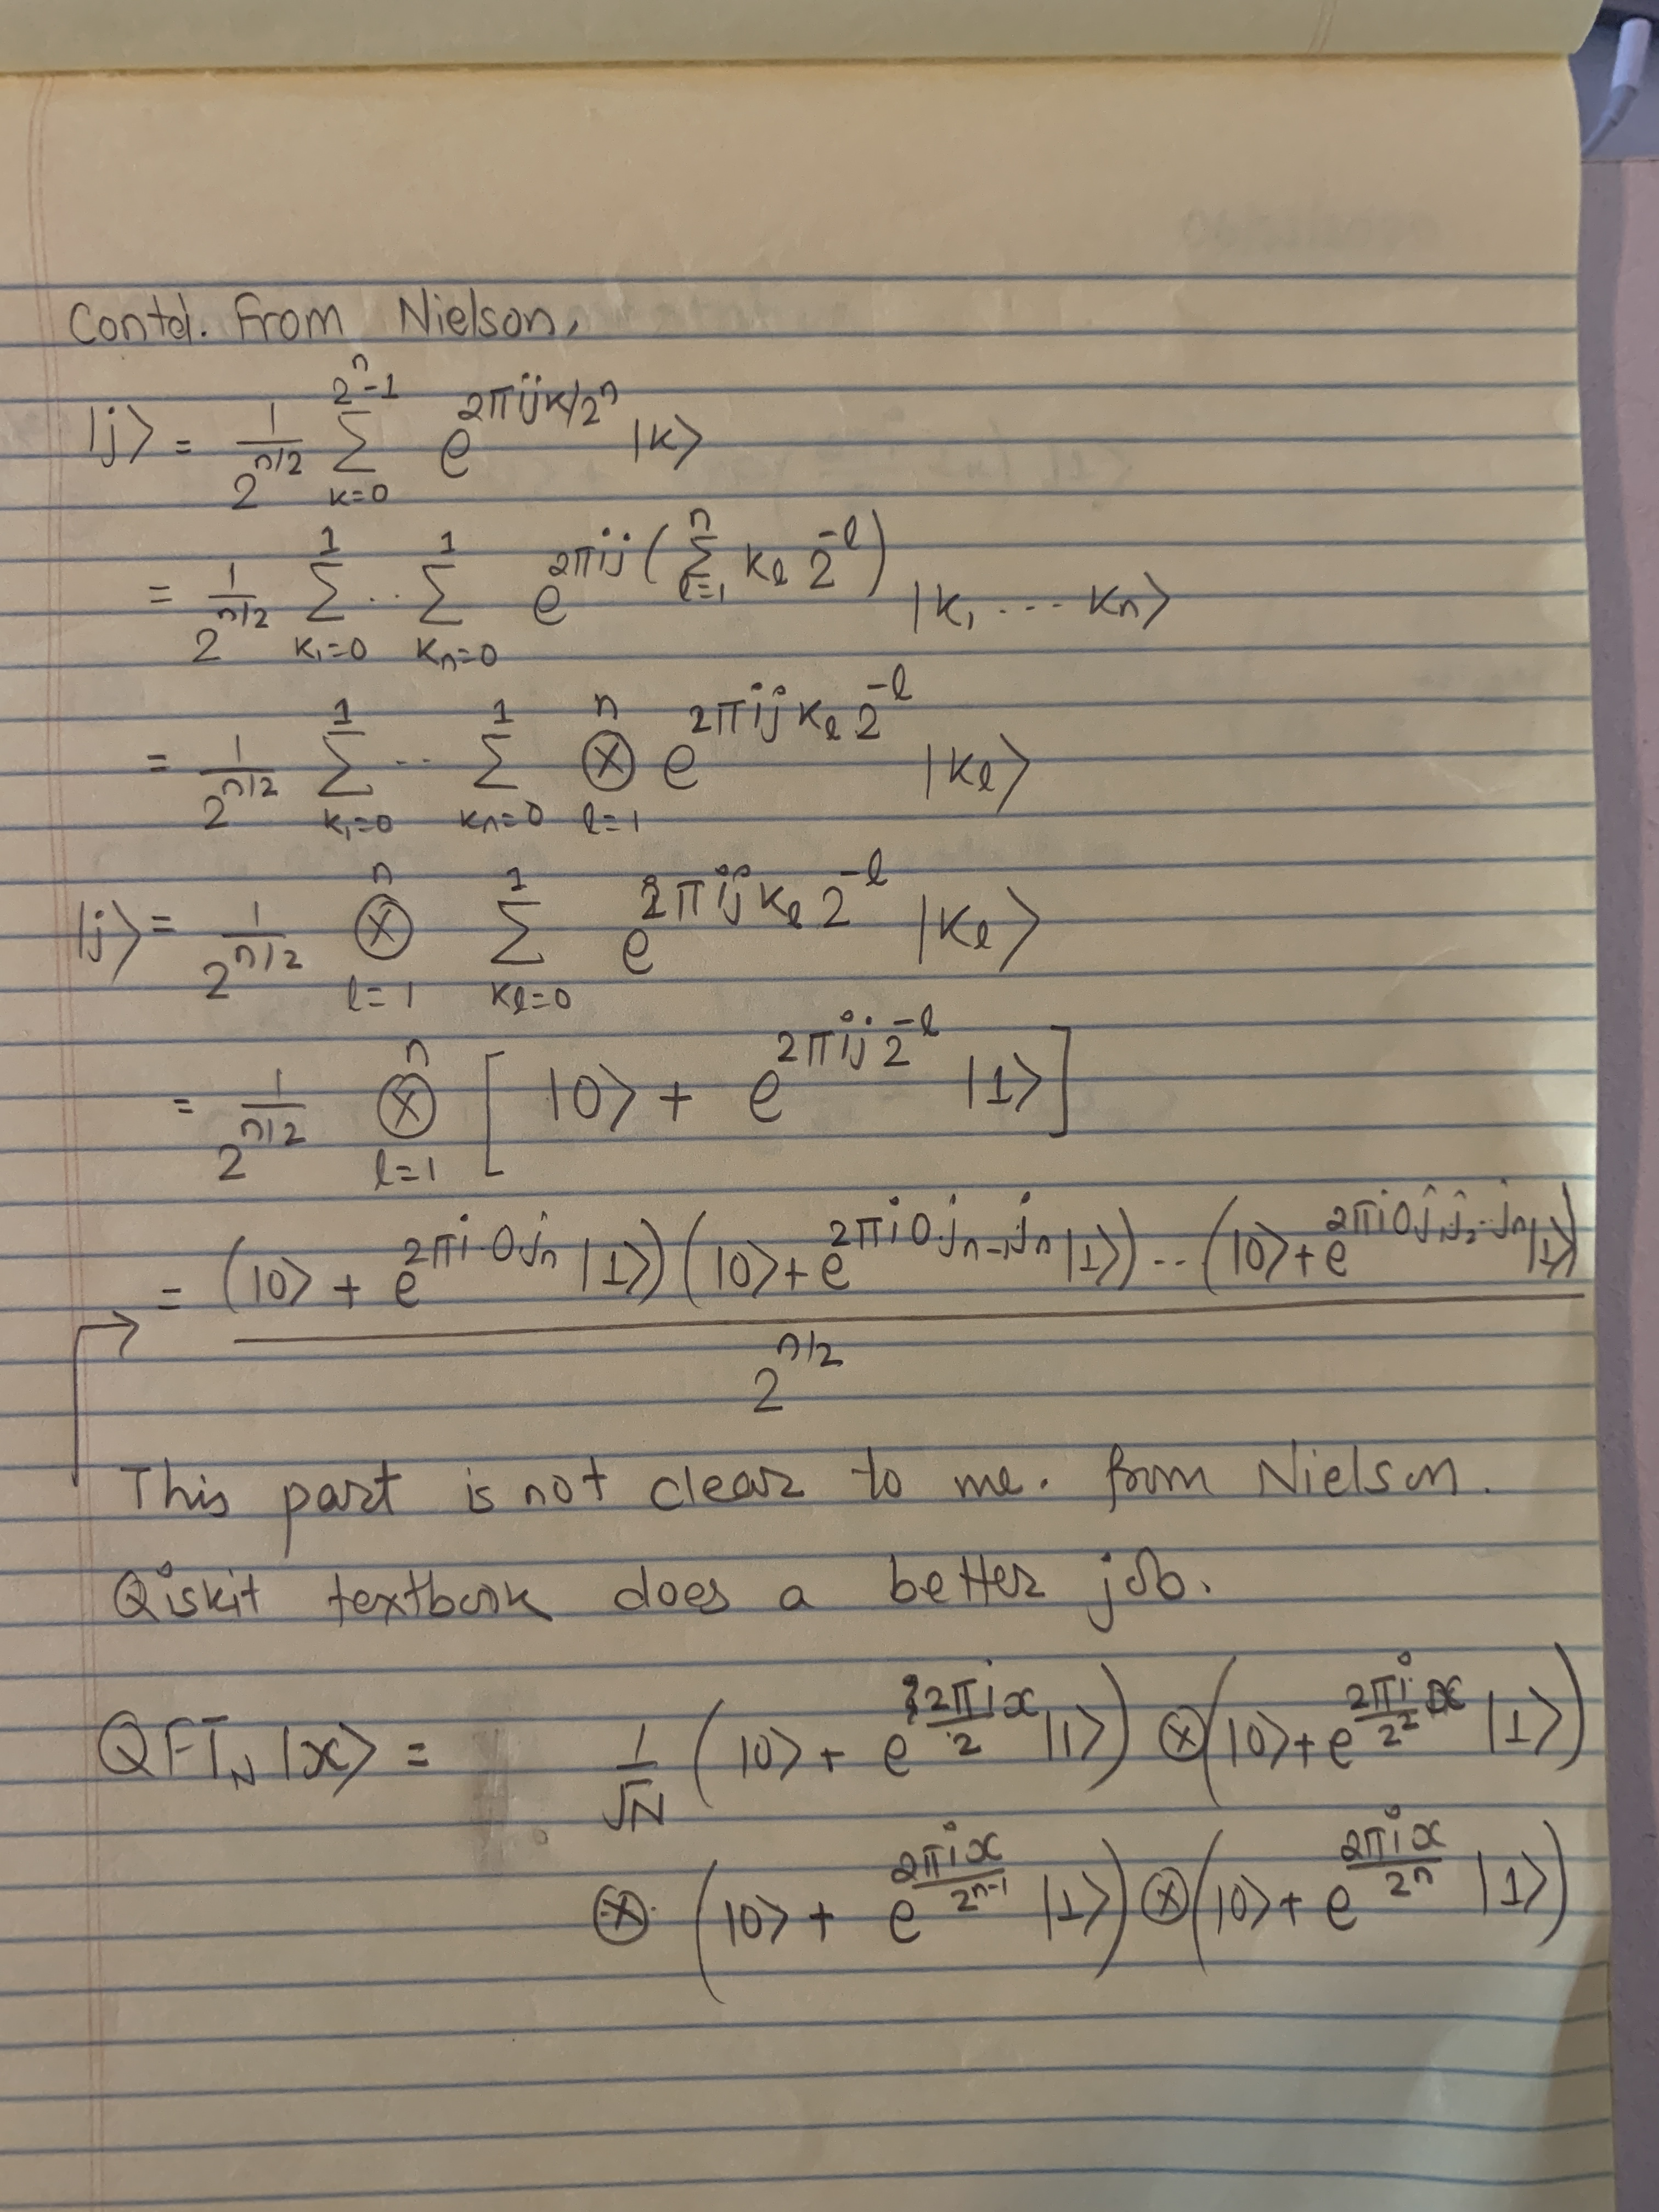 Contd. From Nielson,
|j⟩ = 1/2^{n/2} Σ_{k=0}^{2^n-1} e^{2πijk/2^n} |k⟩
= 1/2^{n/2} Σ_{k₁=0}^{1} .. Σ_{kₙ=0}^{1} e^{2πij(Σ_{l=1}^{n} k_l 2^{-l})} |k₁ .... kₙ⟩
= 1/2^{n/2} Σ_{k₁=0}^{1} .. Σ_{kₙ=0}^{1} ⊗_{l=1}^{n} e^{2πij k_l 2^{-l}} |k_l⟩
|j⟩ = 1/2^{n/2} ⊗_{l=1}^{n} Σ_{k_l=0}^{1} e^{2πij k_l 2^{-l}} |k_l⟩
= 1/2^{n/2} ⊗_{l=1}^{n} [ |0⟩ + e^{2πij 2^{-l}} |1⟩ ]
= (|0⟩ + e^{2πi 0.jₙ} |1⟩)(|0⟩ + e^{2πi 0.jₙ₋₁jₙ} |1⟩) .. (|0⟩ + e^{2πi 0.j₁j₂..jₙ} |1⟩)
2^{n/2}
This part is not clear to me. from Nielson.
Qiskit textbook does a better job.
QFT_N |x⟩ = 1/√N (|0⟩ + e^{2πi/2 x} |1⟩) ⊗ (|0⟩ + e^{2πi/2² x} |1⟩)
⊗ (|0⟩ + e^{2πix/2^{n-1}} |1⟩) ⊗ (|0⟩ + e^{2πix/2^n} |1⟩)